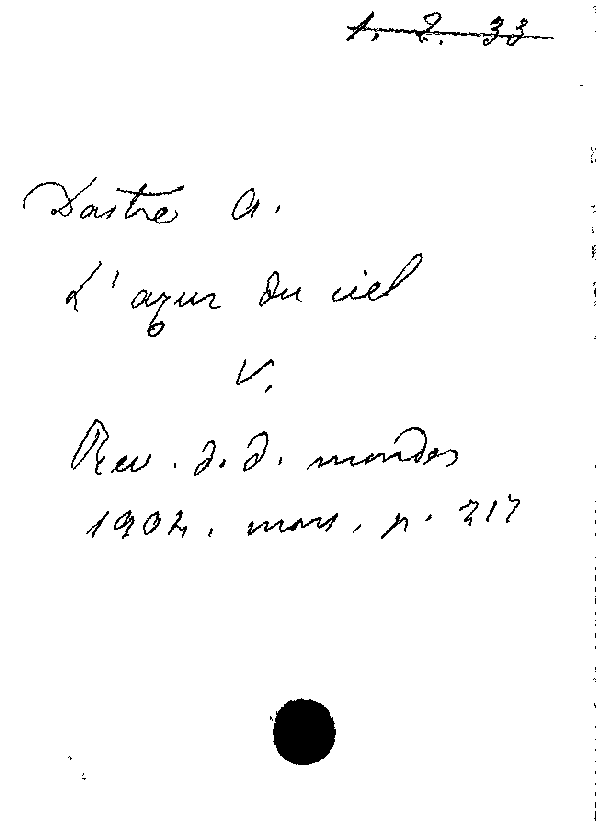 1. 2. 33
Dastre A.
L'azur du ciel
V.
Rev. d. d. mondes
1904. mars. p. 217